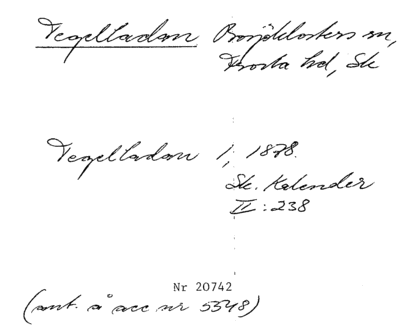 Tegelladan Bosjöklosters sn,
Frosta hd, Sk
Tegelladan 1, 1878.
Sk. Kalender
II : 238
Nr 20742
(ant. å acc nr 5548)